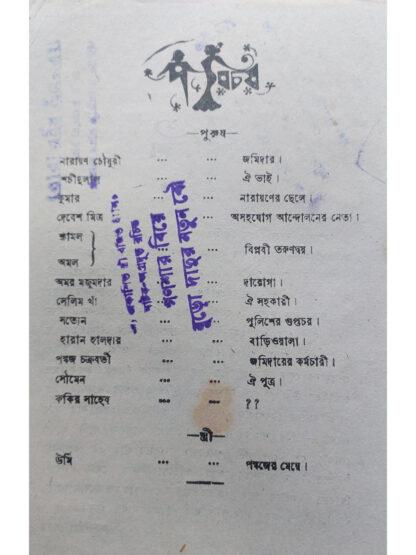 পরিচয়
—পুরুষ—
নারায়ণ চৌধুরী ... ... জমিদার।
শচীদুলাল ... ঐ ভাই।
কুমার ... নারায়ণের ছেলে।
দেবেশ মিত্র ... অসহযোগ আন্দোলনের নেতা।
কামল
অমল } ... বিপ্লবী তরুণদ্বয়।
অমর মজুমদার ... দারোগা।
সেলিম খাঁ ... ঐ সহকারী।
সত্যেন ... পুলিশের গুপ্তচর।
হারান হালদার ... বাড়িওয়ালা।
পঙ্কজ চক্রবর্তী ... ... জমিদারের কর্মচারী।
সৌমেন ... ... ঐ পুত্র।
ফকির সাহেব ... ... ??
—স্ত্রী—
উর্মি ... ... পঙ্কজের মেয়ে।
বিয়ে
বুড়ো দাদুর নতুন বৌ